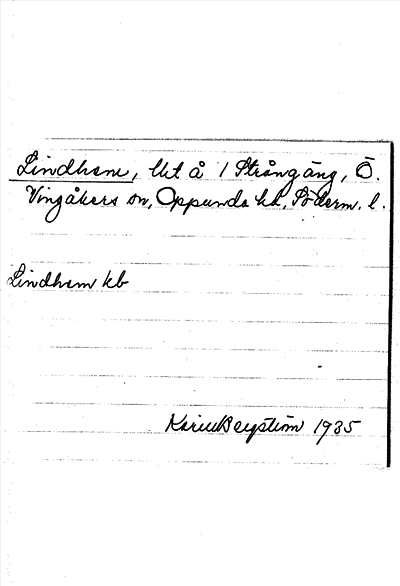 Lindhem, lht å 1 Strångäng, Ö.
Vingåkers sn, Oppunda hd, Söderm. l.
Lindhem kb
Karin Bergström 1935